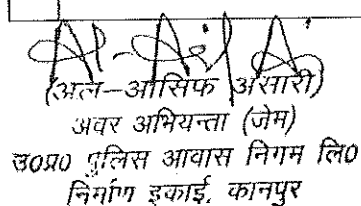 (अल-आसिफ अंसारी)
अवर अभियन्ता (जेम)
उ०प्र० पुलिस आवास निगम लि०
निर्माण इकाई, कानपुर